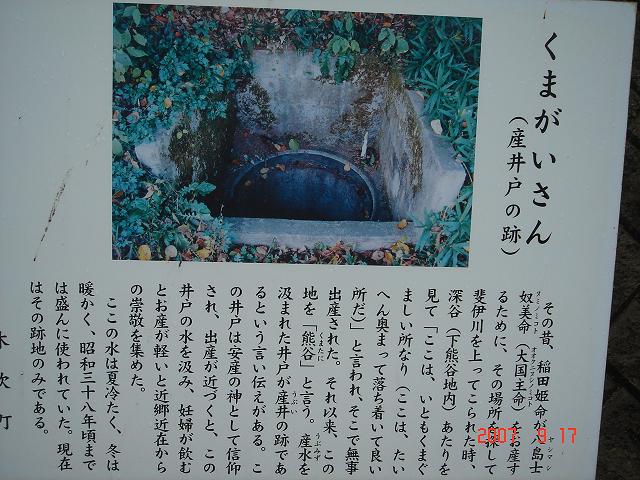 くまがいさん
(産井戸の跡)
その昔、稲田姫命が八島士
ヤシマシ
奴美命(大国主命)をお産す
ヌミノミコト
オオクニヌシノミコト
るために、その場所を探して
斐伊川を上ってこられた時、
深谷(下熊谷地内)あたりを
見て「ここは、いともくまぐ
ましい所なり(ここは、たい
へん奥まって落ち着いて良い
所だ)」と言われ、そこで無事
出産された。それ以来、この
地を「熊谷」と言う。産水を
くまたに
うぶみず
汲まれた井戸が産井の跡であ
うぶい
るという言い伝えがある。こ
の井戸は安産の神として信仰
され、出産が近づくと、この
井戸の水を汲み、妊婦が飲む
とお産が軽いと近郷近在から
の崇敬を集めた。
ここの水は夏冷たく、冬は
暖かく、昭和三十八年頃まで
は盛んに使われていた。現在
はその跡地のみである。
木次町
2007 9 17